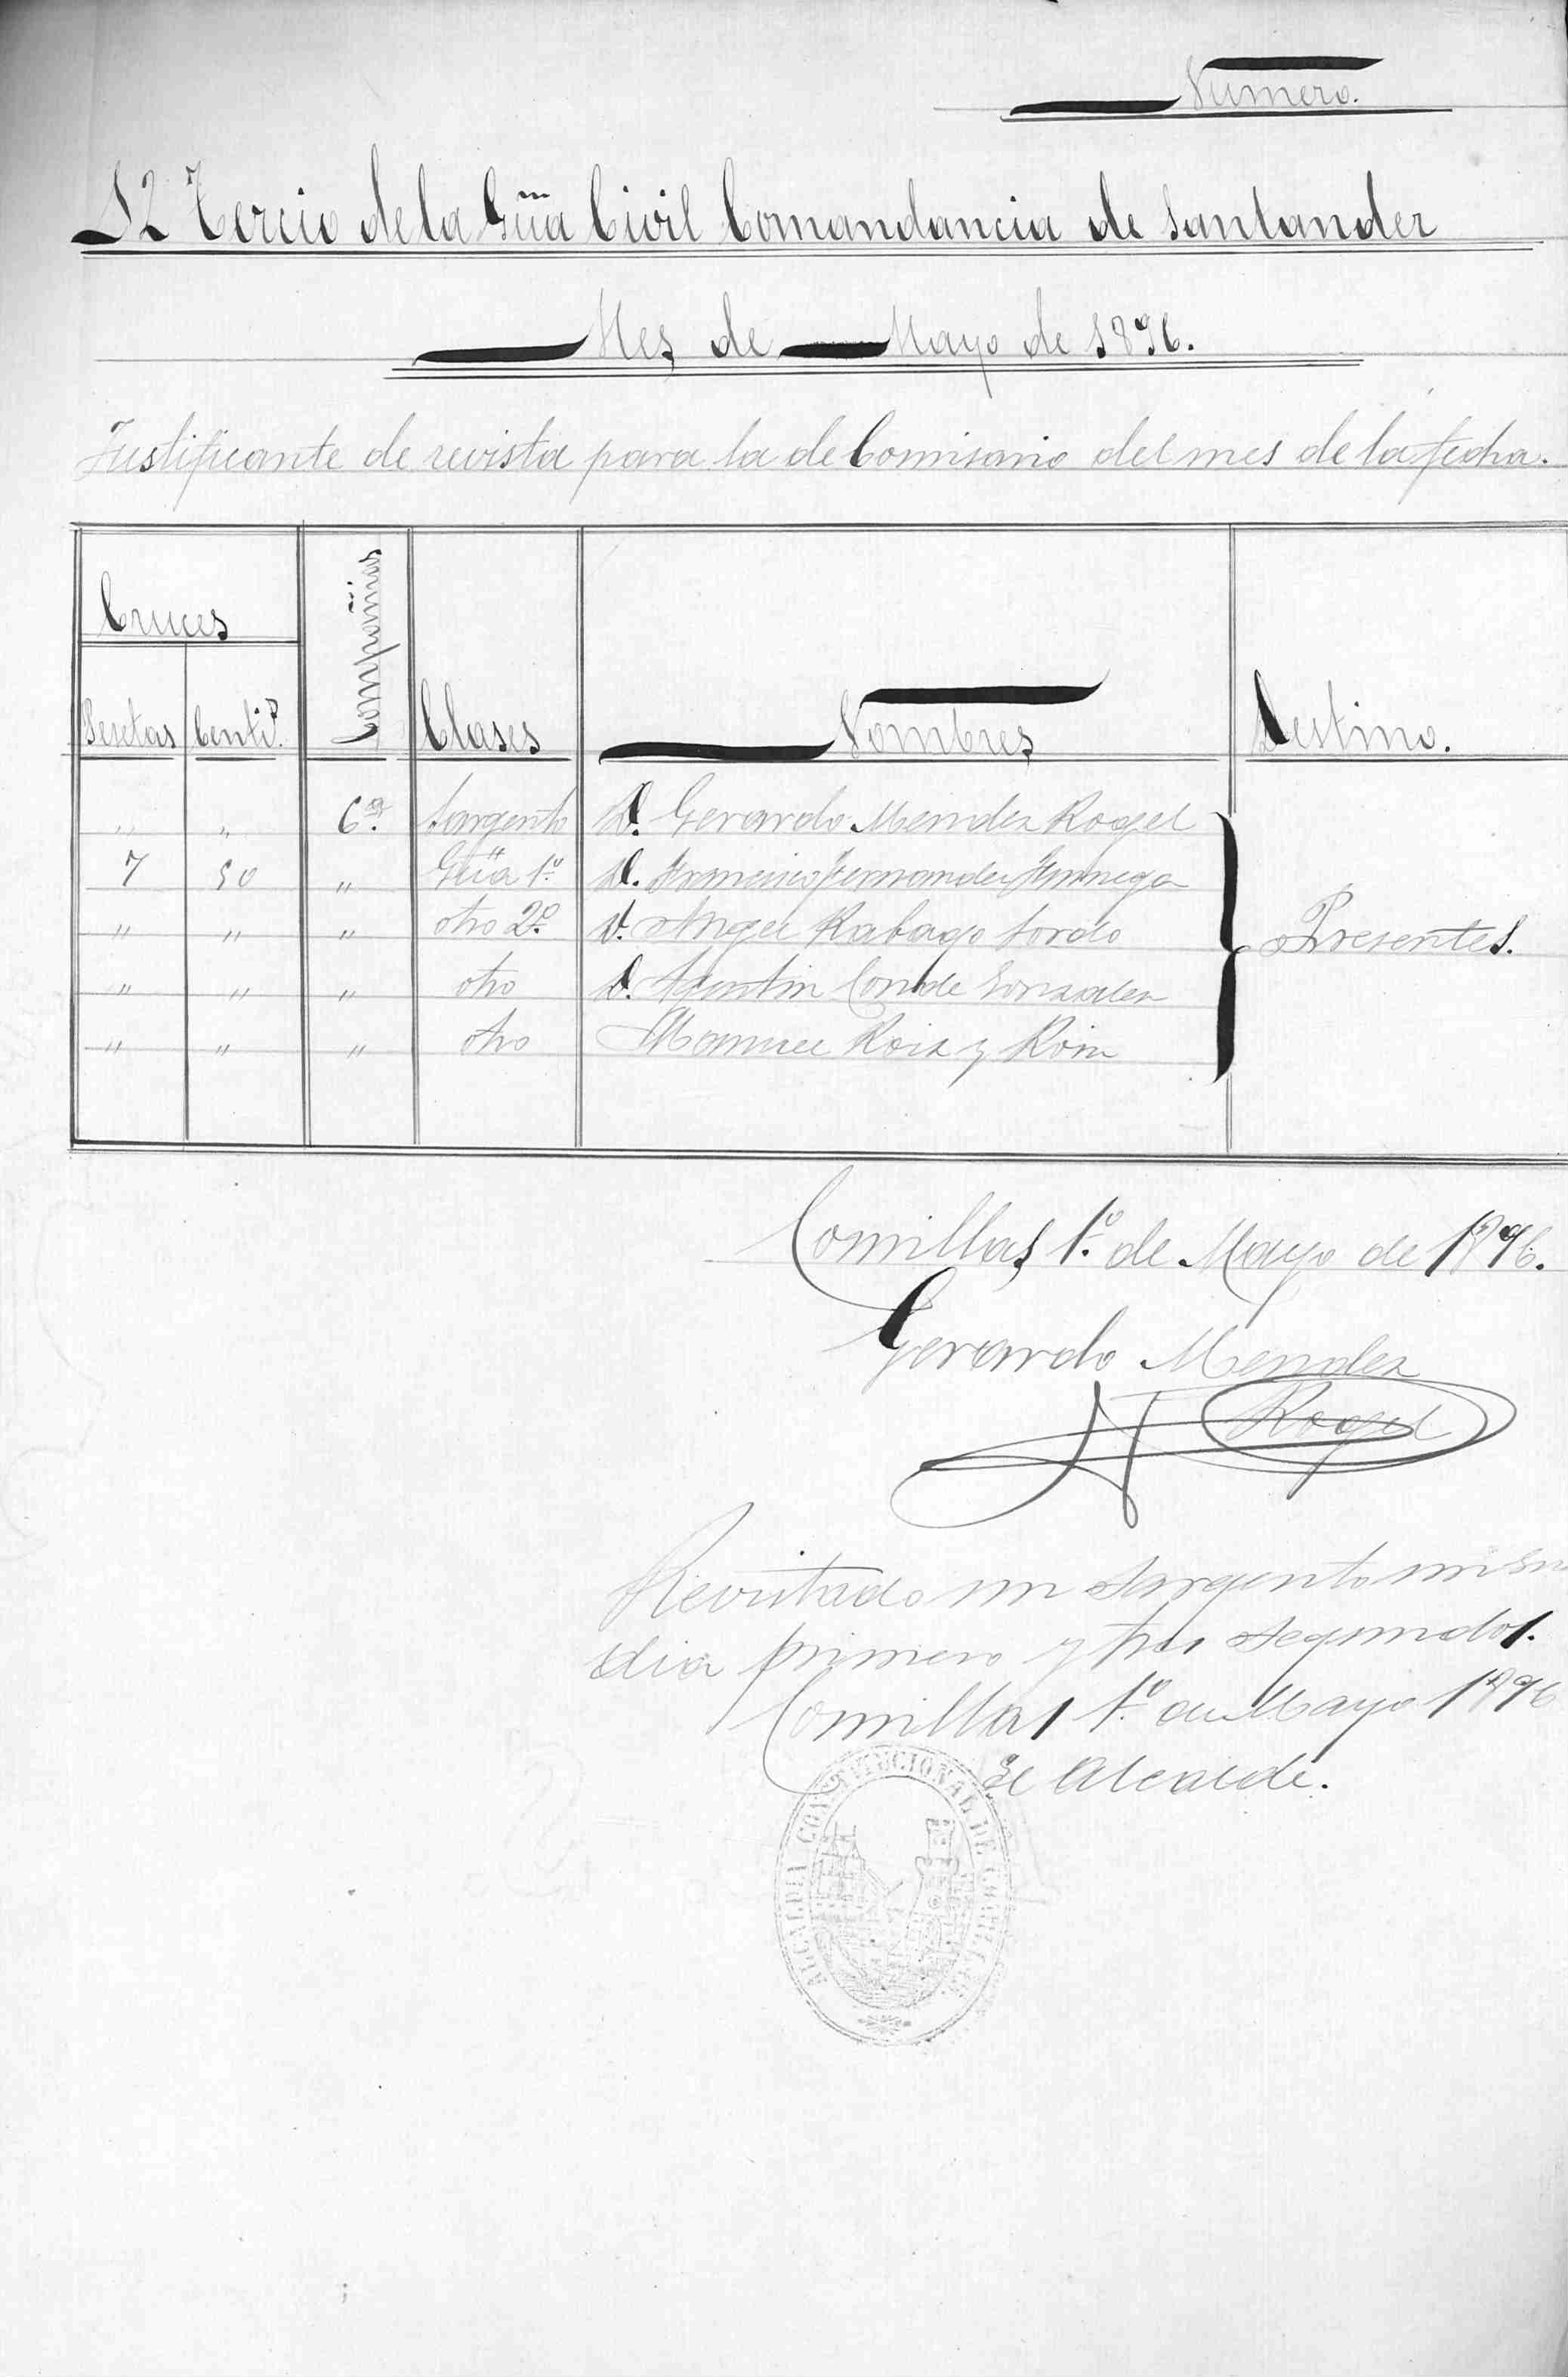 Numero.
12 Tercio de la Güia Civil Comandancia de Santander
Mes de Mayo de 1896.
Justificante de revista para la de Comisario del mes de la fecha.
Cruces
Pesetas Centi.s Compañias Clases Nombres Destino.
" " 6.a Sargento D. Gerardo Mendez Rogel
7 50 " Güia 1.o D. Francisco Fernandez
" " " otro 2.o D. Angel Rabago Sordo
Presentes.
" " " otro D. Agustin Conde Gonzalez
" " " otro Manuel Roiz y Roiz
Comillas 1.o de Mayo de 1896.
Gerardo Mendez
Rogel
Revistado un Sargento un
dia primero y tres segundos.
Comillas 1.o de Mayo 1896
El Alcalde.
ALCALDIA CONSTITUCIONAL DE COMILLAS